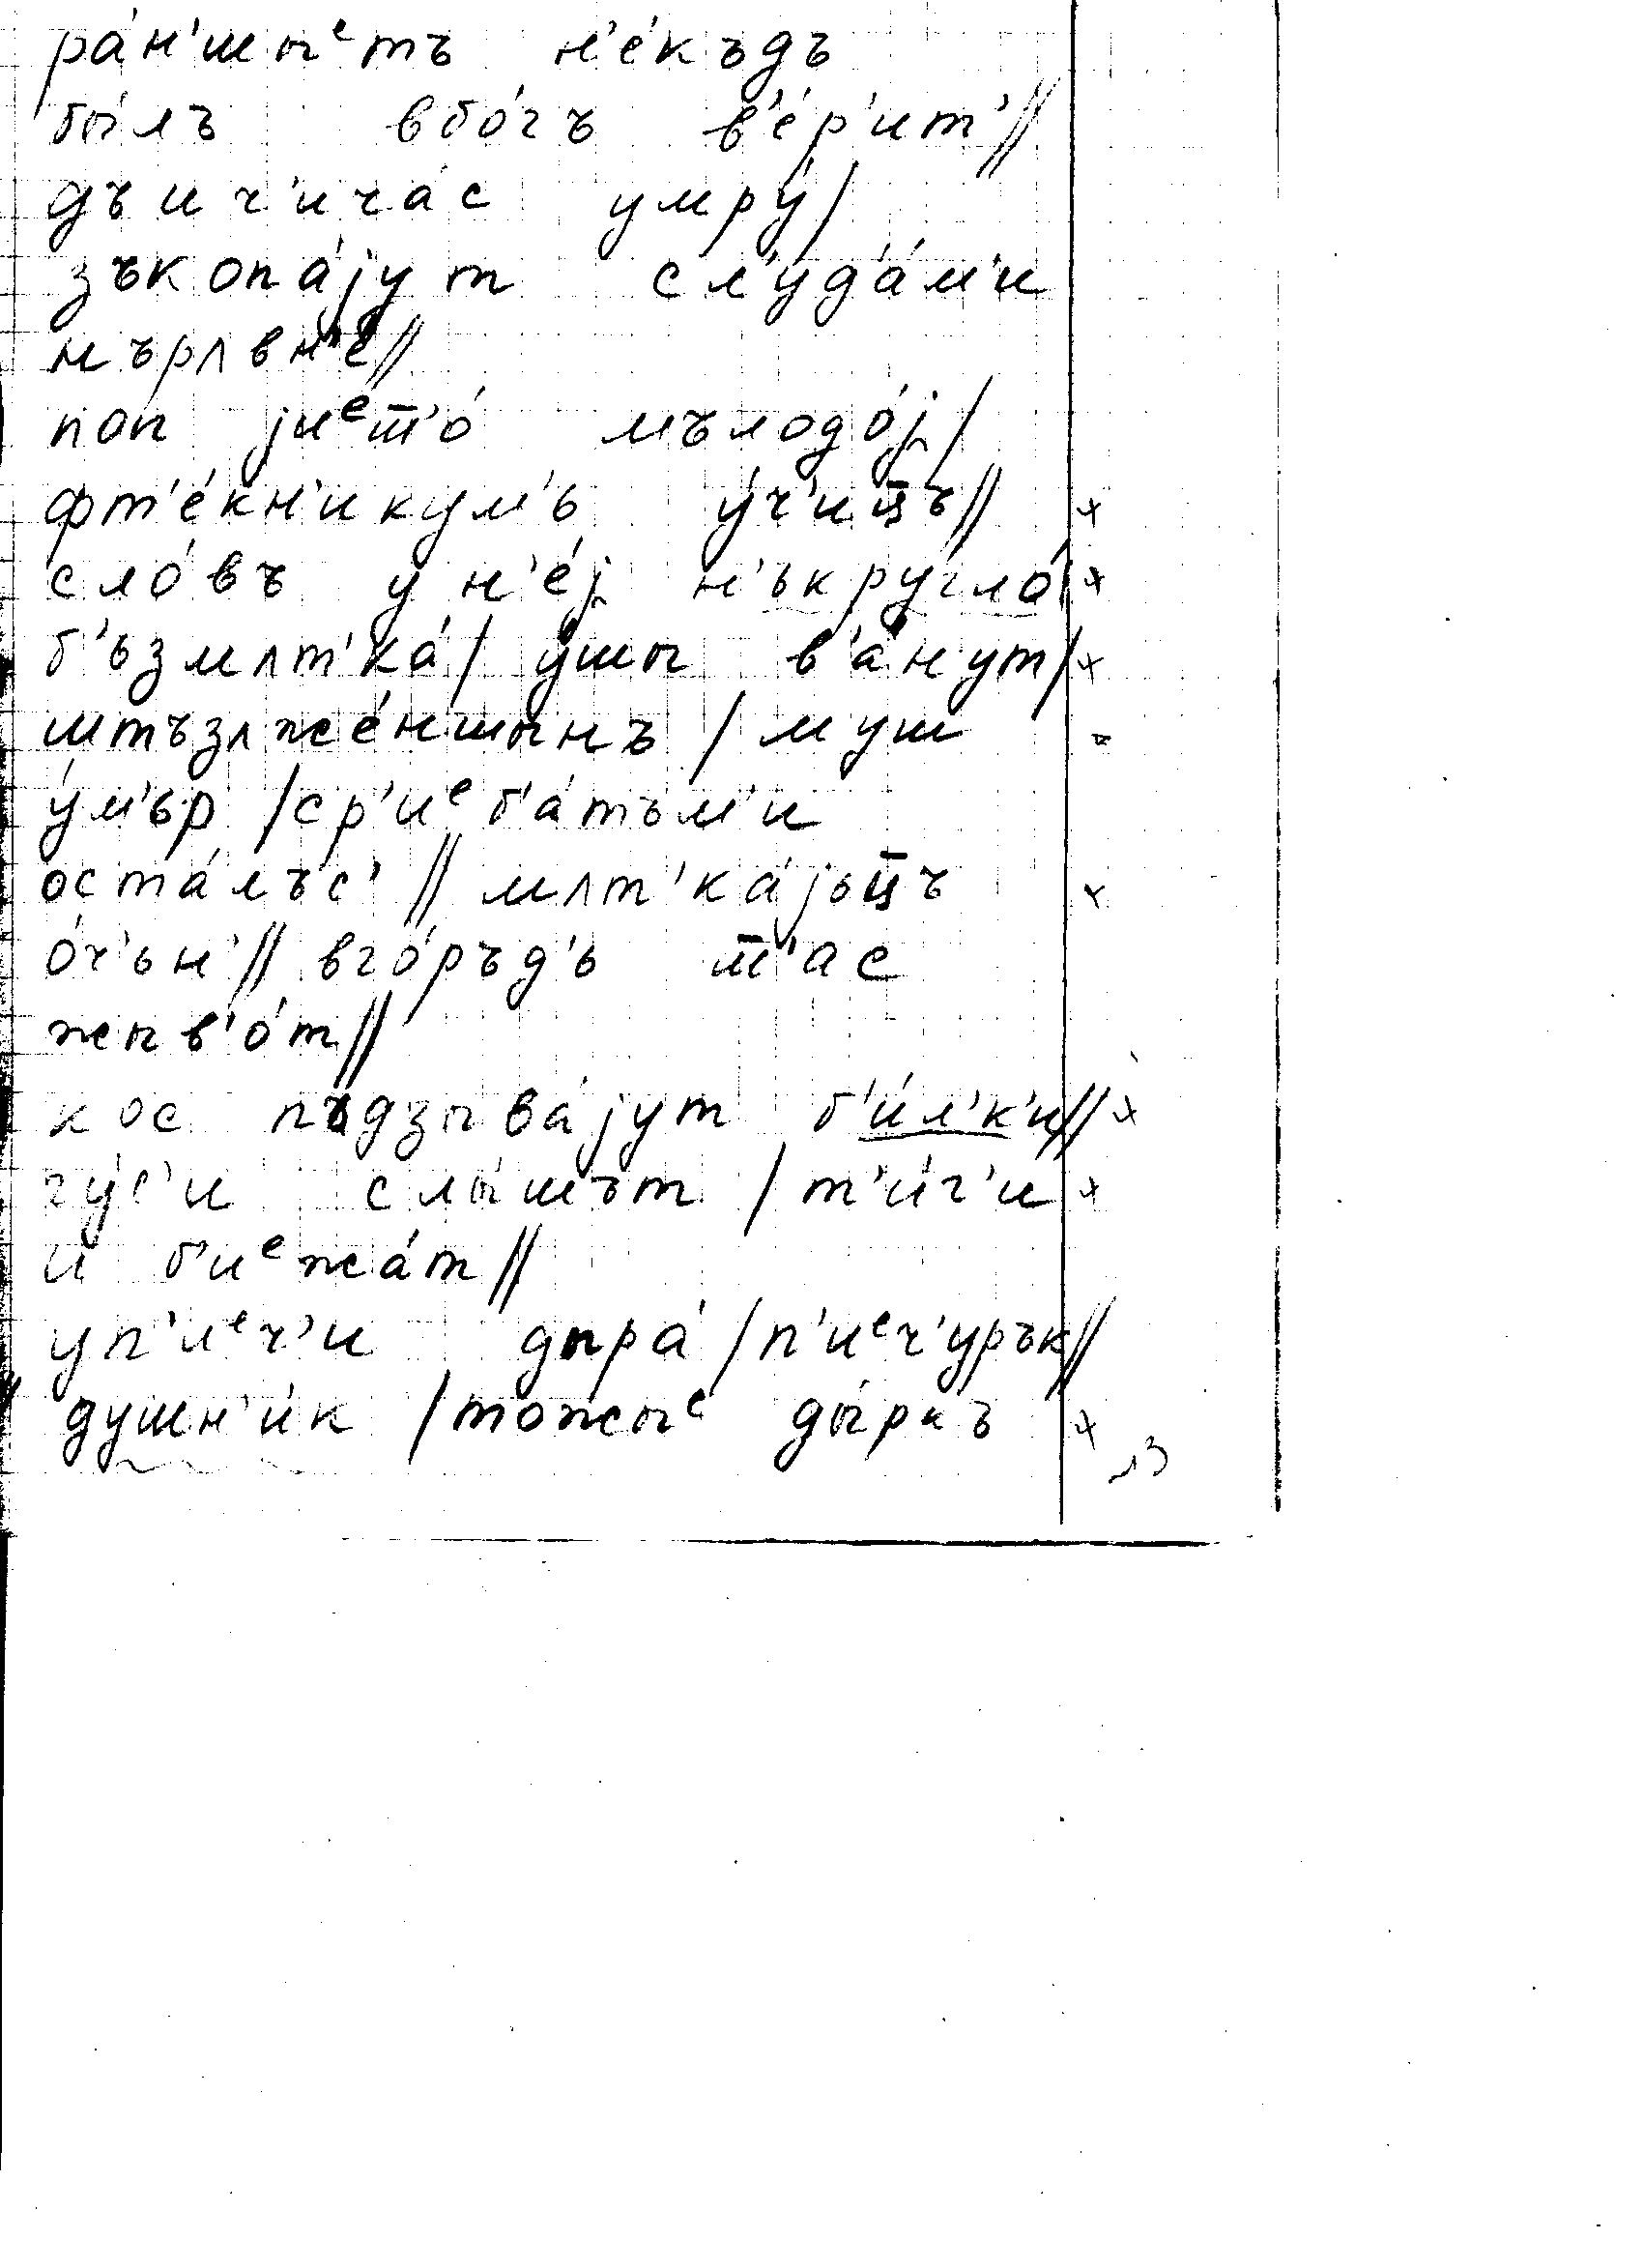 ра́н'шыᵉтъ н'е́къдъ
бы́лъ вбо́гъ в'е́р'ит'//
дъ и ч'ича́с умру́/
зъкопа́jут сл'уд'а́м'и
нърʌвн'е́//
поп jиᵉт̄'о́ мълодо́j/
фт'е́кн'икум'ь у́ч'иц̄ъ// ×
сло́въ у н'е́j н'ькру́гло́ ×
б'ьзмʌт'ка́/ у́шы в'а́нут/ ×
штъзʌже́ншынъ / муш -
у́м'ьр /ср'иᵉб'а́тъм'и
оста́лъс' // мʌт'ка́jьц̄ъ ×
о́ч'ьн'// вго́ръд'ь т̄'ас
жыв'о́т//
кос пъдзыва́jут б'и́л'к'и// ×
гу́с'и слы́шът /т'и́г'и ×
и б'иᵉжа́т//
уп'иᵉч'и дыра́ /п'иᵉч'урък//
душн'и́к /то́жыᵉ ды́ркъ ×
13